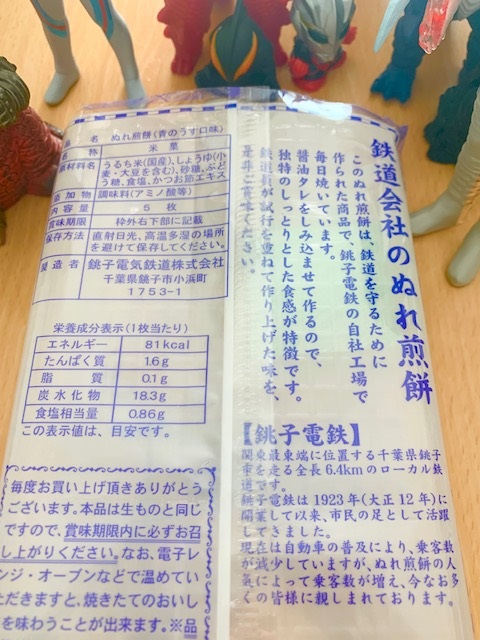 品 名 ぬれ煎餅(青のうす口味)
名 称 米 菓
原材料名 うるち米(国産)、しょうゆ(小
麦・大豆を含む)、砂糖、ぶど
う糖、食塩、かつお節エキス
添加物 調味料(アミノ酸等)
内容量 5 枚
賞味期限 枠外右下部に記載
保存方法 直射日光、高温多湿の場所
を避けて保存してください。
製造者 銚子電気鉄道株式会社
千葉県銚子市小浜町
1753-1
栄養成分表示(1枚当たり)
エネルギー 81kcal
たんぱく質 1.6g
脂 質 0.1g
炭水化物 18.3g
食塩相当量 0.86g
この表示値は、目安です。
毎度お買い上げ頂きありがとう
ございます。本品は生ものと同じ
ですので、賞味期限内に必ずお召
し上がりください。なお、電子レ
ンジ・オーブンなどで温めてい
ただきますと、焼きたてのおいし
を味わうことが出来ます。※品
鉄道会社のぬれ煎餅
このぬれ煎餅は、鉄道を守るために
作られた商品で、銚子電鉄の自社工場で
毎日焼いています。
醤油タレをしみ込ませて作るので、
独特のしっとりとした食感が特徴です。
鉄道員が試行を重ねて作り上げた味を、
是非ご賞味ください。
【銚子電鉄】
関東最東端に位置する千葉県銚子
市を走る全長6.4kmのローカル鉄
道です。
銚子電鉄は1923年(大正12年)に
開業して以来、市民の足として活躍
してきました。
現在は自動車の普及により、乗客数
が減少していますが、ぬれ煎餅の人
気によって乗客数が増え、今なお多
くの皆様に親しまれております。